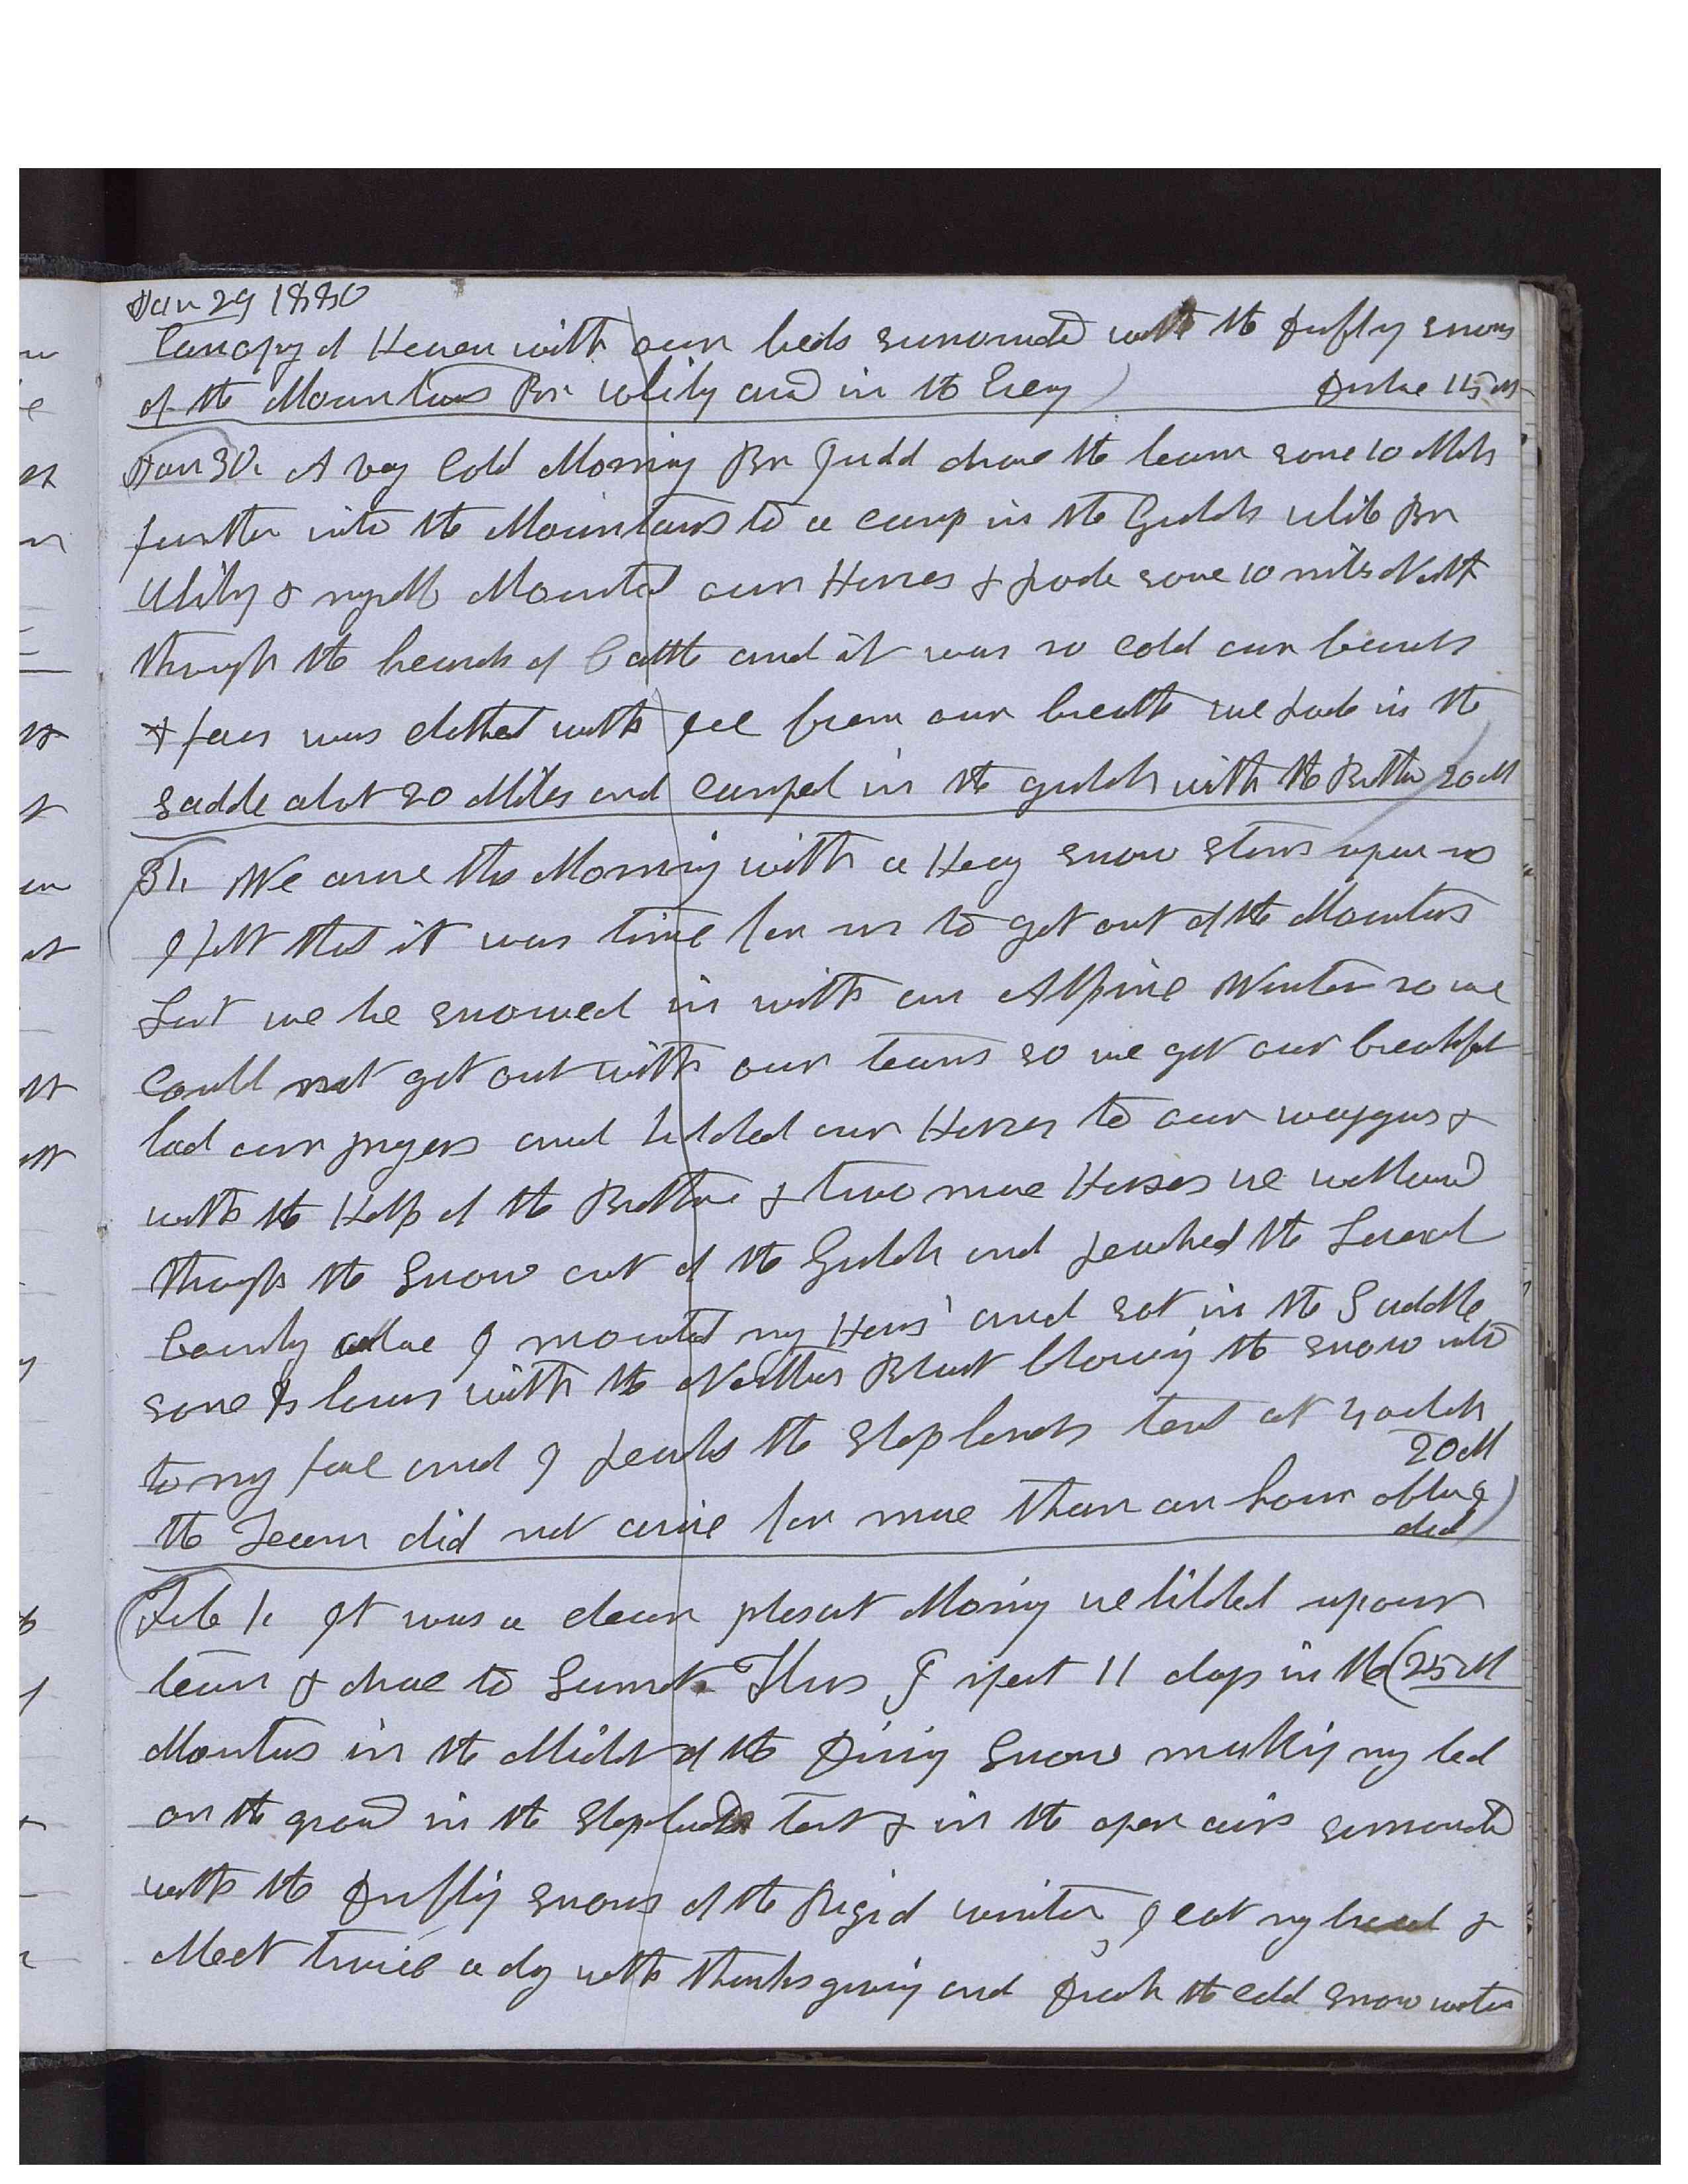 Jan 29 1880
Canopy of Heaven with our beds surrounded with the drifting snows
of the Mountains Br Utily and in the Evening drove 15 M
Jan 30. A very Cold Morning Br Judd drove the team some 10 Miles
further into the Mountains to a camp in the Gulch while Br
Utily & myself Mounted our Horses & rode some 10 miles North
through the heards of Cattle and it was so cold our beards
& faces was clothed with Ice from our breath we rode in the
saddle about 20 Miles and camped in the gulch with the Brethren 20 M
31. We arose this Morning with a Heavy snow storm upon us
I felt that it was time for us to get out of the Mountains
Lest we be snowed in with an Alpine Winter so we
Could not get out with our teams so we got our breakfast
had our prayers and hitched our Horses to our waggons &
with the Help of the Brethren & two more Horses we wallowed
through the Snow out of the Gulch and reached the Level
Country above I mounted my Horse and sat in the Saddle
some hours with the Northern Blast blowing the snow into
to my face and I reached the Shepherds tent at oclok
20 M
the Team did not arive for more than an hour after I
did
Feb 1. It was a clear plesant Morning we hitched up our
team & drove to Sunset. Thus I spent 11 days in the 25 M
Mountains in the Midst of the Snow making my bed
on the ground in the Shepherds tent & in the open air surrounded
with the drifting snows of the Rigid winter, I eat my bread &
Meet twice a day with thanksgiving and drank the cold snow water